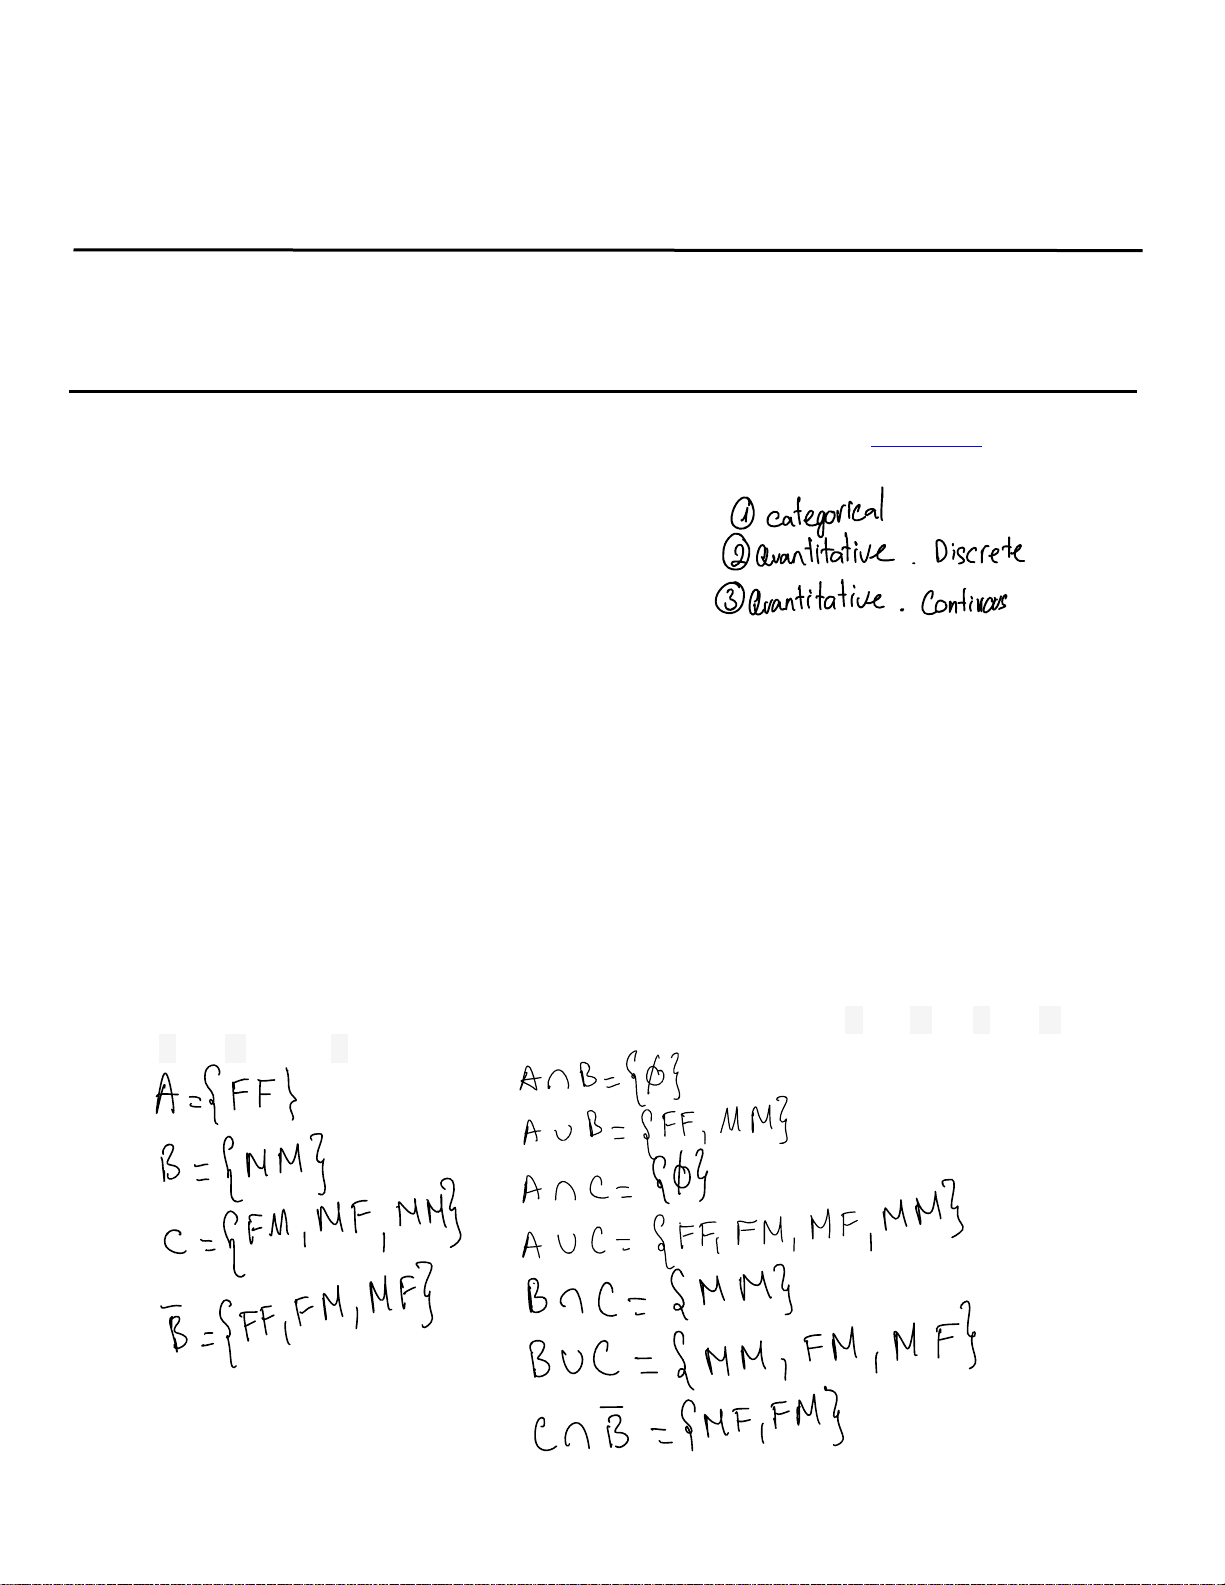 ① categorical
② Quantitative . Discrete
③ Quantitative . Continous
A={FF}
B={MM}
C={FM, MF, MM}
B̅={FF, FM, MF}
A∩B={ϕ}
A∪B={FF, MM}
A∩C={ϕ}
A∪C={FF, FM, MF, MM}
B∩C={MM}
B∪C={MM, FM, MF}
C∩B̅={MF, FM}